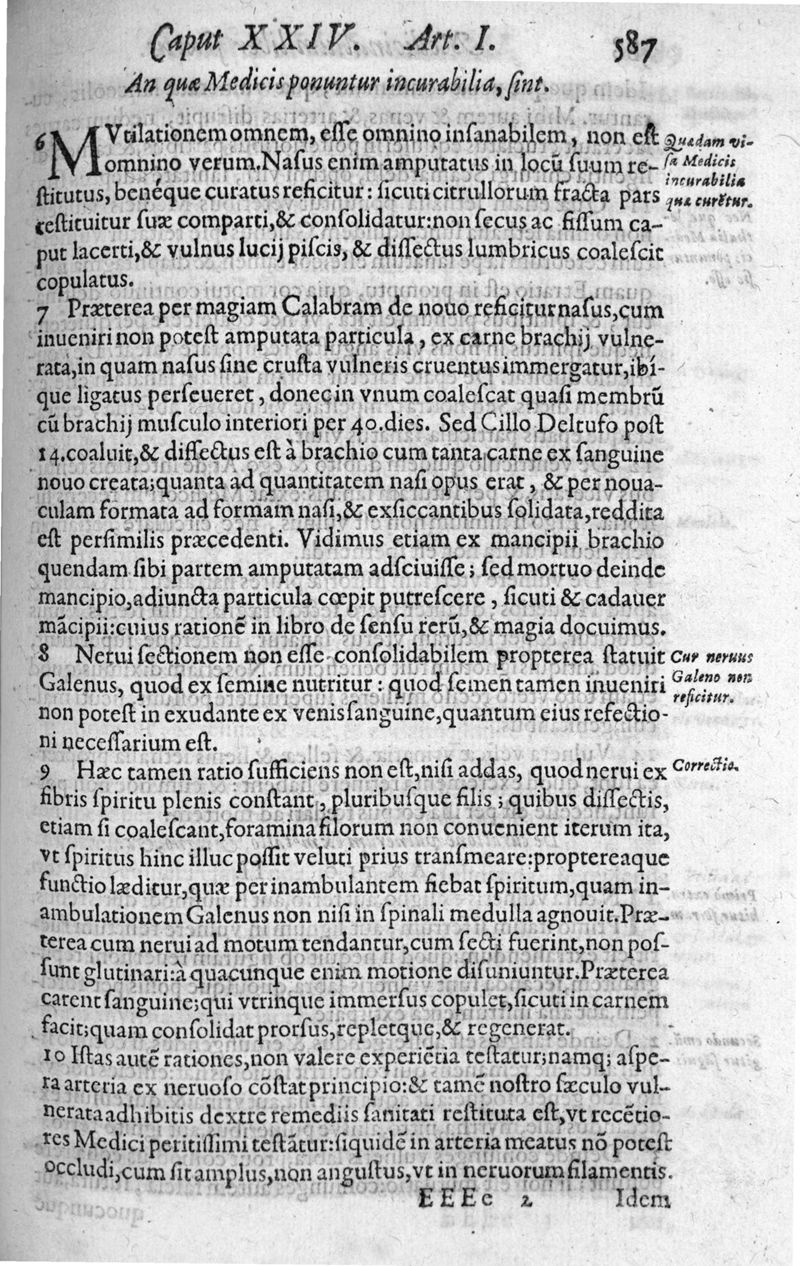 Caput XXIV. Art. I. 587
An quæ Medicis ponuntur incurabilia, ſint.
6 MVtilationem omnem, eſſe omnino inſanabilem, non eſt
omnino verum.Naſus enim amputatus in locũ ſuum re-
ſtitutus, benéque curatus reficitur: ſicuti citrullorum fracta pars
reſtituitur ſuæ comparti,& conſolidatur:non ſecus ac fiſſum ca-
put lacerti,& vulnus lucij piſcis, & diſſectus lumbricus coaleſcit
copulatus.
Quædam vi-
ſa Medicis
incurabilia
quæ curẽtur.
7 Præterea per magiam Calabram de nouo reficitur naſus,cum
inueniri non poteſt amputata particula, ex carne brachij vulne-
rata,in quam naſus ſine cruſta vulneris cruentus immergatur,ibí-
que ligatus perſeueret, donec in vnum coaleſcat quaſi membrũ
cũ brachij muſculo interiori per 40.dies. Sed Cillo Deltufo poſt
14.coaluit,& diſſectus eſt à brachio cum tanta carne ex ſanguine
nouo creata;quanta ad quantitatem naſi opus erat, & per noua-
culam formata ad formam naſi,& exſiccantibus ſolidata,reddita
eſt perſimilis præcedenti. Vidimus etiam ex mancipii brachio
quendam ſibi partem amputatam adſciuiſſe; ſed mortuo deinde
mancipio,adiuncta particula cœpit putreſcere, ſicuti & cadauer
mãcipii:cuius rationẽ in libro de ſenſu rerũ,& magia docuimus.
8 Nerui ſectionem non eſſe conſolidabilem propterea ſtatuit
Galenus, quod ex ſemine nutritur: quod ſemen tamen inueniri
non poteſt in exudante ex venis ſanguine,quantum eius refectio-
ni neceſſarium eſt.
Cur neruus
Galeno non
reficitur.
9 Hæc tamen ratio ſufficiens non eſt,niſi addas, quod nerui ex
fibris ſpiritu plenis conſtant, pluribuſque filis; quibus diſſectis,
etiam ſi coaleſcant,foramina filorum non conuenient iterum ita,
vt ſpiritus hinc illuc poſſit veluti prius tranſmeare:proptereaque
functio læditur,quæ per inambulantem fiebat ſpiritum,quam in-
ambulationem Galenus non niſi in ſpinali medulla agnouit.Præ-
terea cum nerui ad motum tendantur,cum ſecti fuerint,non poſ-
ſunt glutinari:à quacunque enim motione diſuniuntur.Præterea
carent ſanguine;qui vtrinque immerſus copulet,ſicuti in carnem
facit;quam conſolidat prorſus,repletque,& regenerat.
Correctio.
10 Iſtas autẽ rationes,non valere experiẽtia teſtatur;namq; aſpe-
ra arteria ex neruoſo cõſtat principio:& tamẽ noſtro ſæculo vul-
nerata adhibitis dextre remediis ſanitati reſtituta eſt,vt recẽtio-
res Medici peritiſſimi teſtãtur:ſiquidẽ in arteria meatus nõ poteſt
occludi,cum ſit amplus,non anguſtus,vt in neruorum filamentis.
EEEe 2 Idem